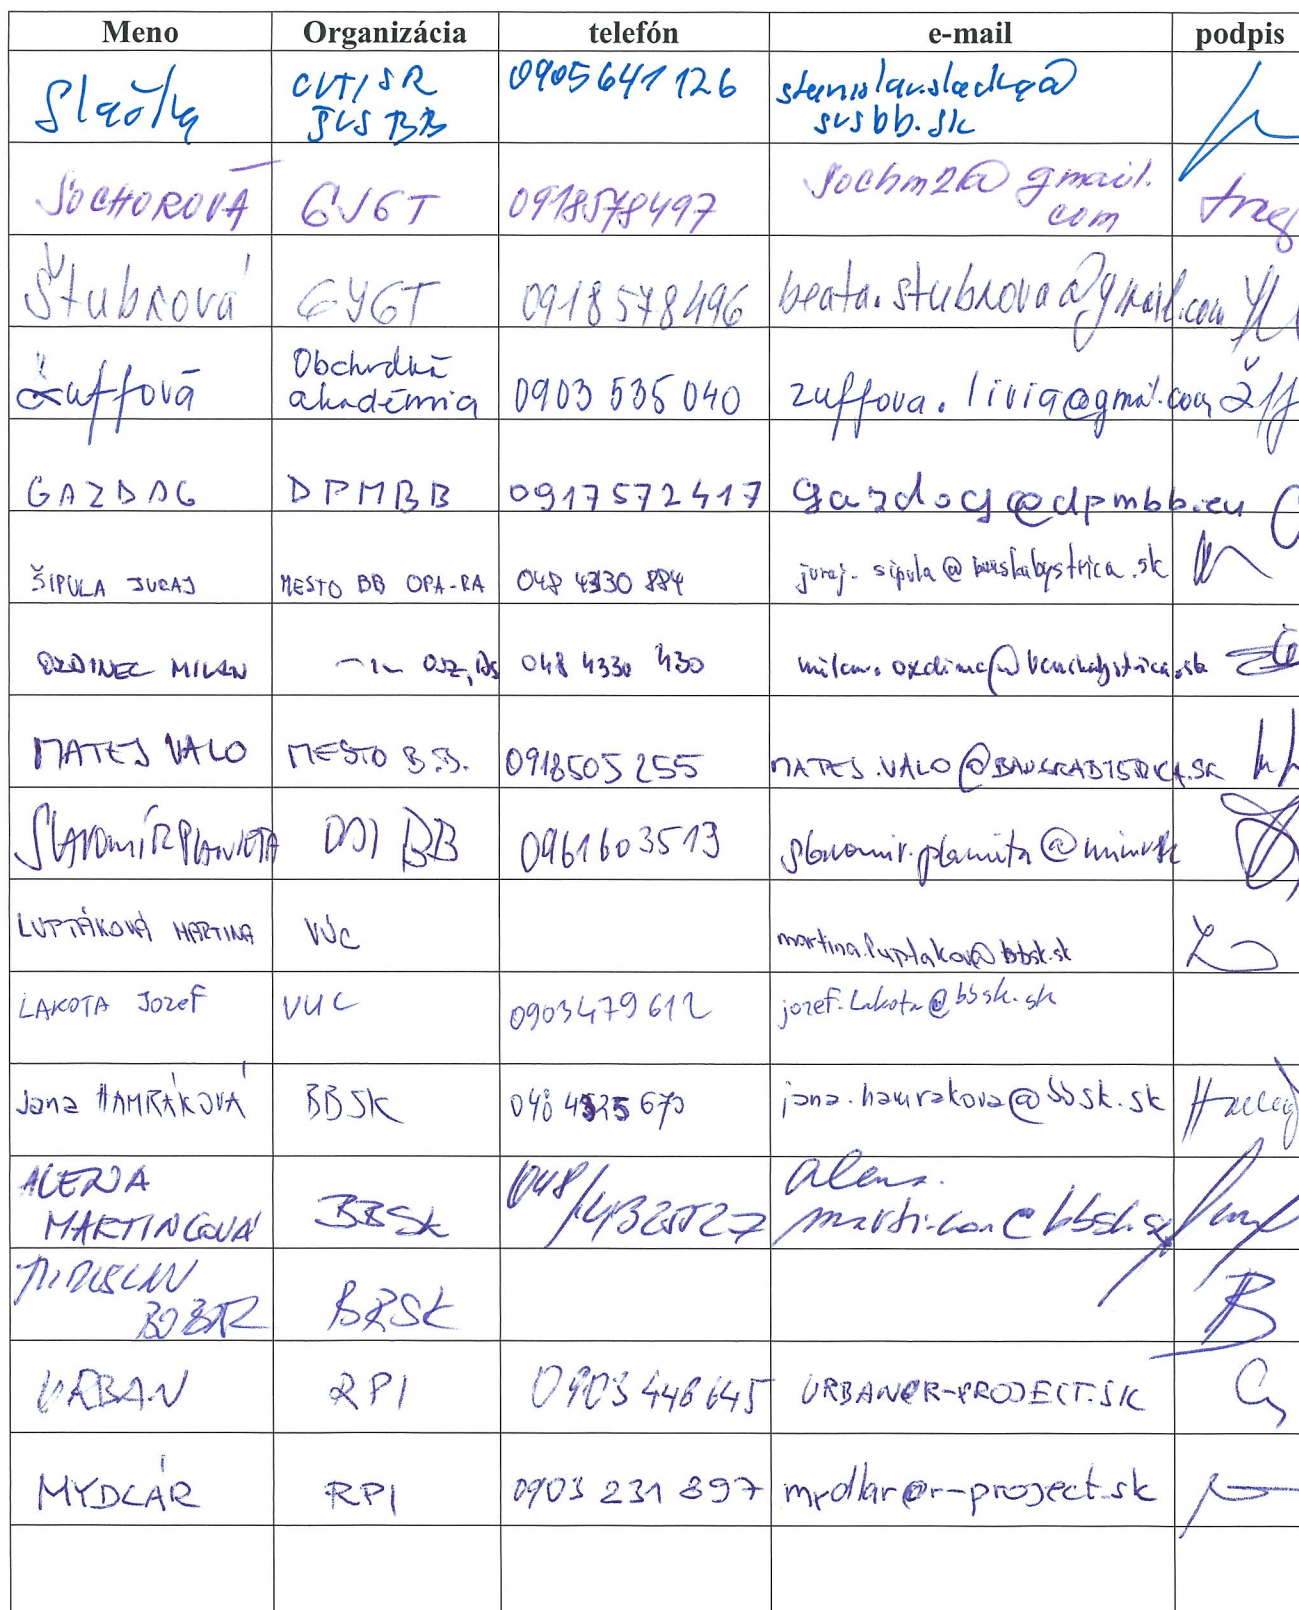 Meno Organizácia telefón e-mail podpis
Slačka CVTI SR 0905 641 126 stanislav.slacka@
ŠVS BB svsbb.sk
SOCHOROVÁ GJGT 0918578497 sochm2@gmail.
com
Štubňová GJGT 0918 578 496 beata.stubnova@gmail.com
Žuffová Obchodná 0903 535 040 zuffova.livia@gmail.com
akadémia
GAZDAG DPMBB 0917572417 gazdag@dpmbb.eu
ŠIPULA JURAJ MESTO BB OPA-RA 048 4330 884 juraj.sipula@banskabystrica.sk
MILAN 048 4330 430
MATEJ VALO MESTO B.B. 0918505 255 MATEJ.VALO@BANSKABYSTRICA.SK
SLAVOMÍR PLANIETA BB 0961603513
LUPTÁKOVÁ MARTINA VÚC martina.luptakova@bbsk.sk
LAKOTA Jozef VUC 0903479612 jozef.Lakota@bbsk.sk
Jana HAMRÁKOVÁ BBSK 048 4325 670 jana.hamrakova@bbsk.sk
ALENA alena.
MARTINCOVÁ BBSK 048/4325527 martincova@bbsk.sk
MIROSLAV
BOBER BBSK
URBAN RPI 0903 446 645 URBAN@R-PROJECT.SK
MYDLÁR RPI 0903 231 897 mydlar@r-project.sk